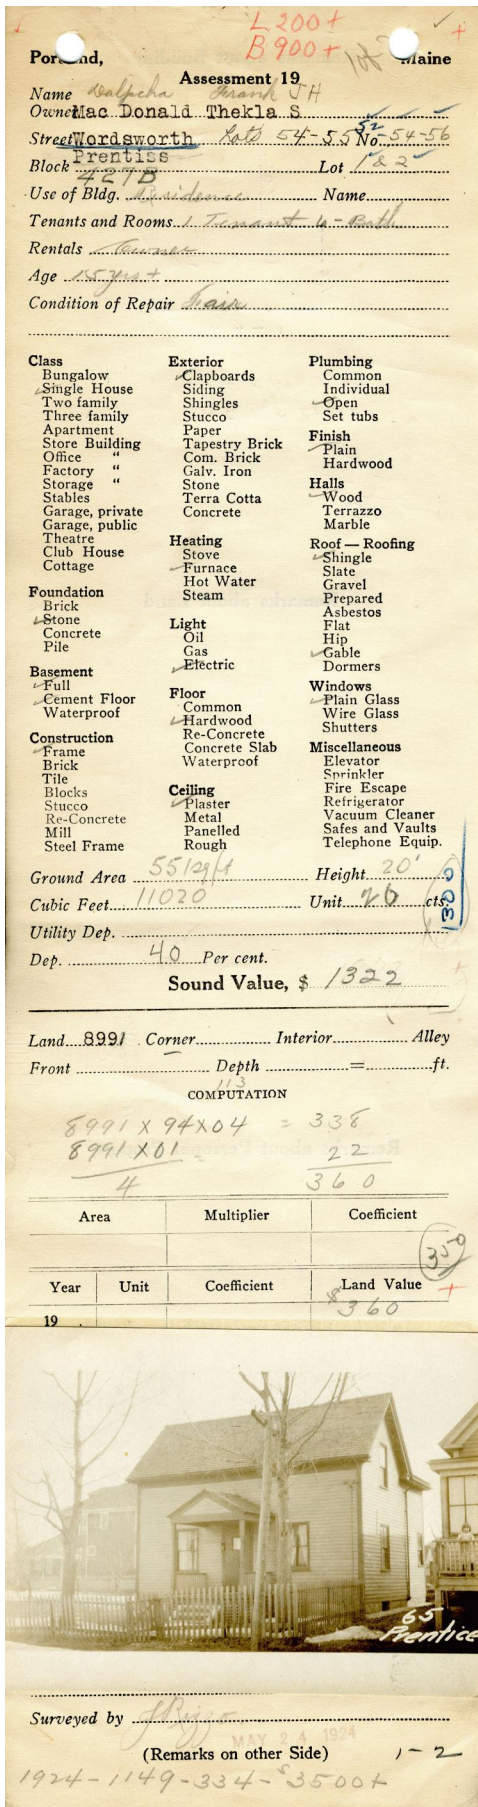 L 200 +
B 900 +
Portland, Maine
Assessment 19
Name Frank J H
Owner Mac Donald Thekla S
Street Wordsworth Lots 54-55 No. 52-54-56
Prentiss
Block 427B Lot 1 & 2
Use of Bldg. Residence Name
Tenants and Rooms 1 Tenant 6 - Bath
Rentals Owner
Age 15 yrs +
Condition of Repair Fair
Class
Bungalow
Single House
Two family
Three family
Apartment
Store Building
Office "
Factory "
Storage "
Stables
Garage, private
Garage, public
Theatre
Club House
Cottage
Foundation
Brick
Stone
Concrete
Pile
Basement
Full
Cement Floor
Waterproof
Construction
Frame
Brick
Tile
Blocks
Stucco
Re-Concrete
Mill
Steel Frame
Exterior
Clapboards
Siding
Shingles
Stucco
Paper
Tapestry Brick
Com. Brick
Galv. Iron
Stone
Terra Cotta
Concrete
Heating
Stove
Furnace
Hot Water
Steam
Light
Oil
Gas
Electric
Floor
Common
Hardwood
Re-Concrete
Concrete Slab
Waterproof
Ceiling
Plaster
Metal
Panelled
Rough
Plumbing
Common
Individual
Open
Set tubs
Finish
Plain
Hardwood
Halls
Wood
Terrazzo
Marble
Roof — Roofing
Shingle
Slate
Gravel
Prepared
Asbestos
Flat
Hip
Gable
Dormers
Windows
Plain Glass
Wire Glass
Shutters
Miscellaneous
Elevator
Sprinkler
Fire Escape
Refrigerator
Vacuum Cleaner
Safes and Vaults
Telephone Equip.
Ground Area 551 sq ft Height 20'
Cubic Feet 11020 Unit 20 cts.
1300
Utility Dep.
Dep. 40 Per cent.
Sound Value, $ 1322
Land 8991 Corner Interior Alley
Front Depth = ft.
113
COMPUTATION
8991 X 94 X 04 = 338
8991 X 01 = 22
4 360
Area Multiplier Coefficient
350
Year Unit Coefficient Land Value
$360
19
65
Prentice
Surveyed by
MAY 24 1924
(Remarks on other Side) 1-2
1924-1149-334-$3500+